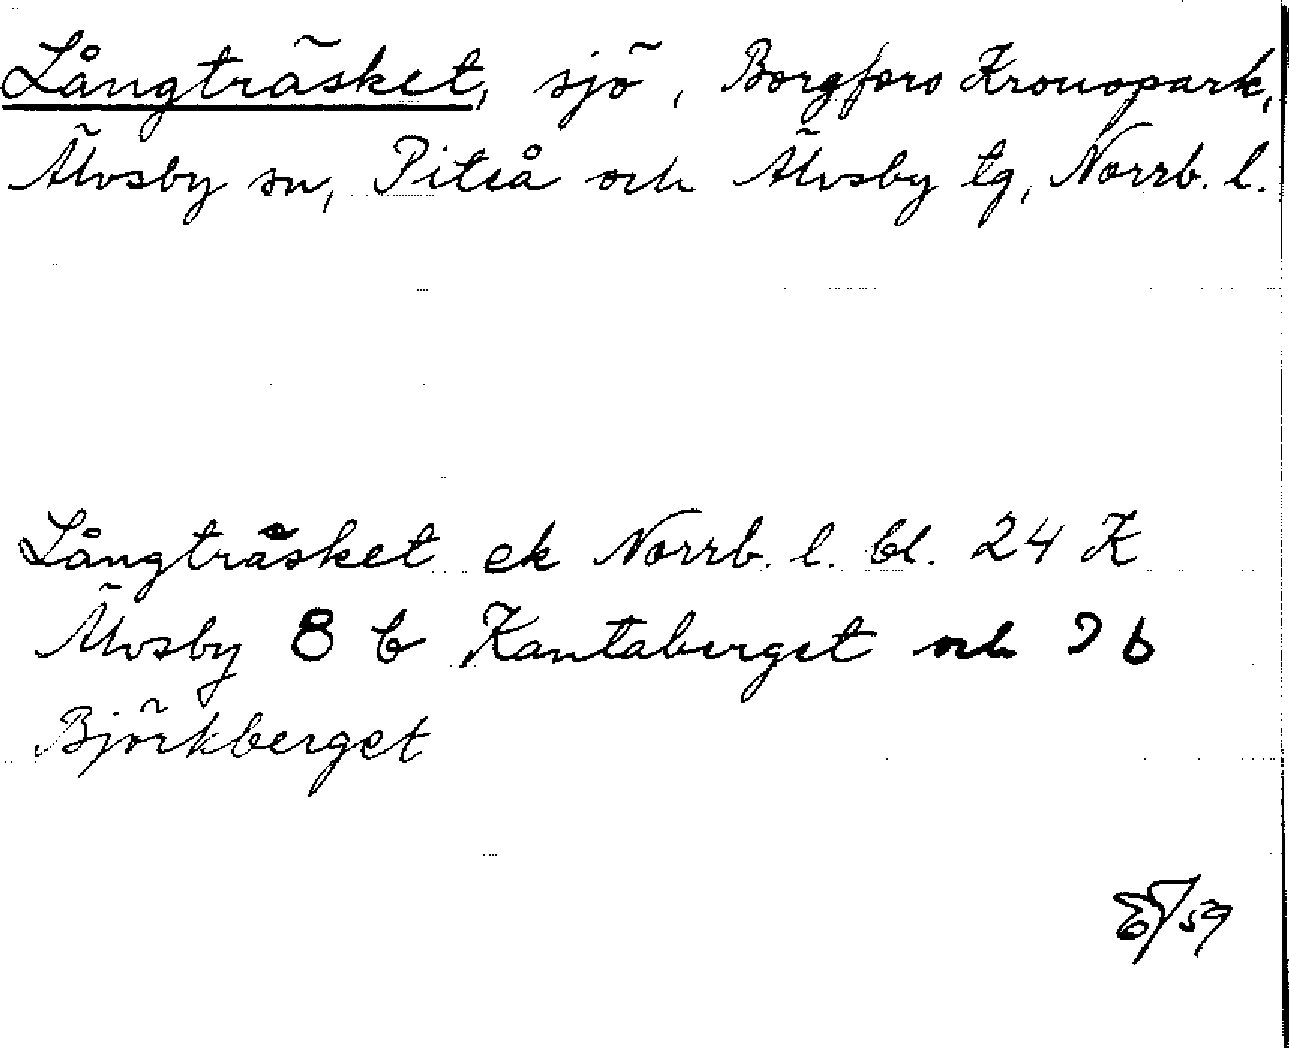 Långträsket, sjö, Borgfors Kronopark,
Älvsby sn, Piteå och Älvsby tg, Norrb. l.
Långträsket ek Norrb. l. bl. 24 K
Älvsby 8 b Kantaberget och 9 b
Björkberget